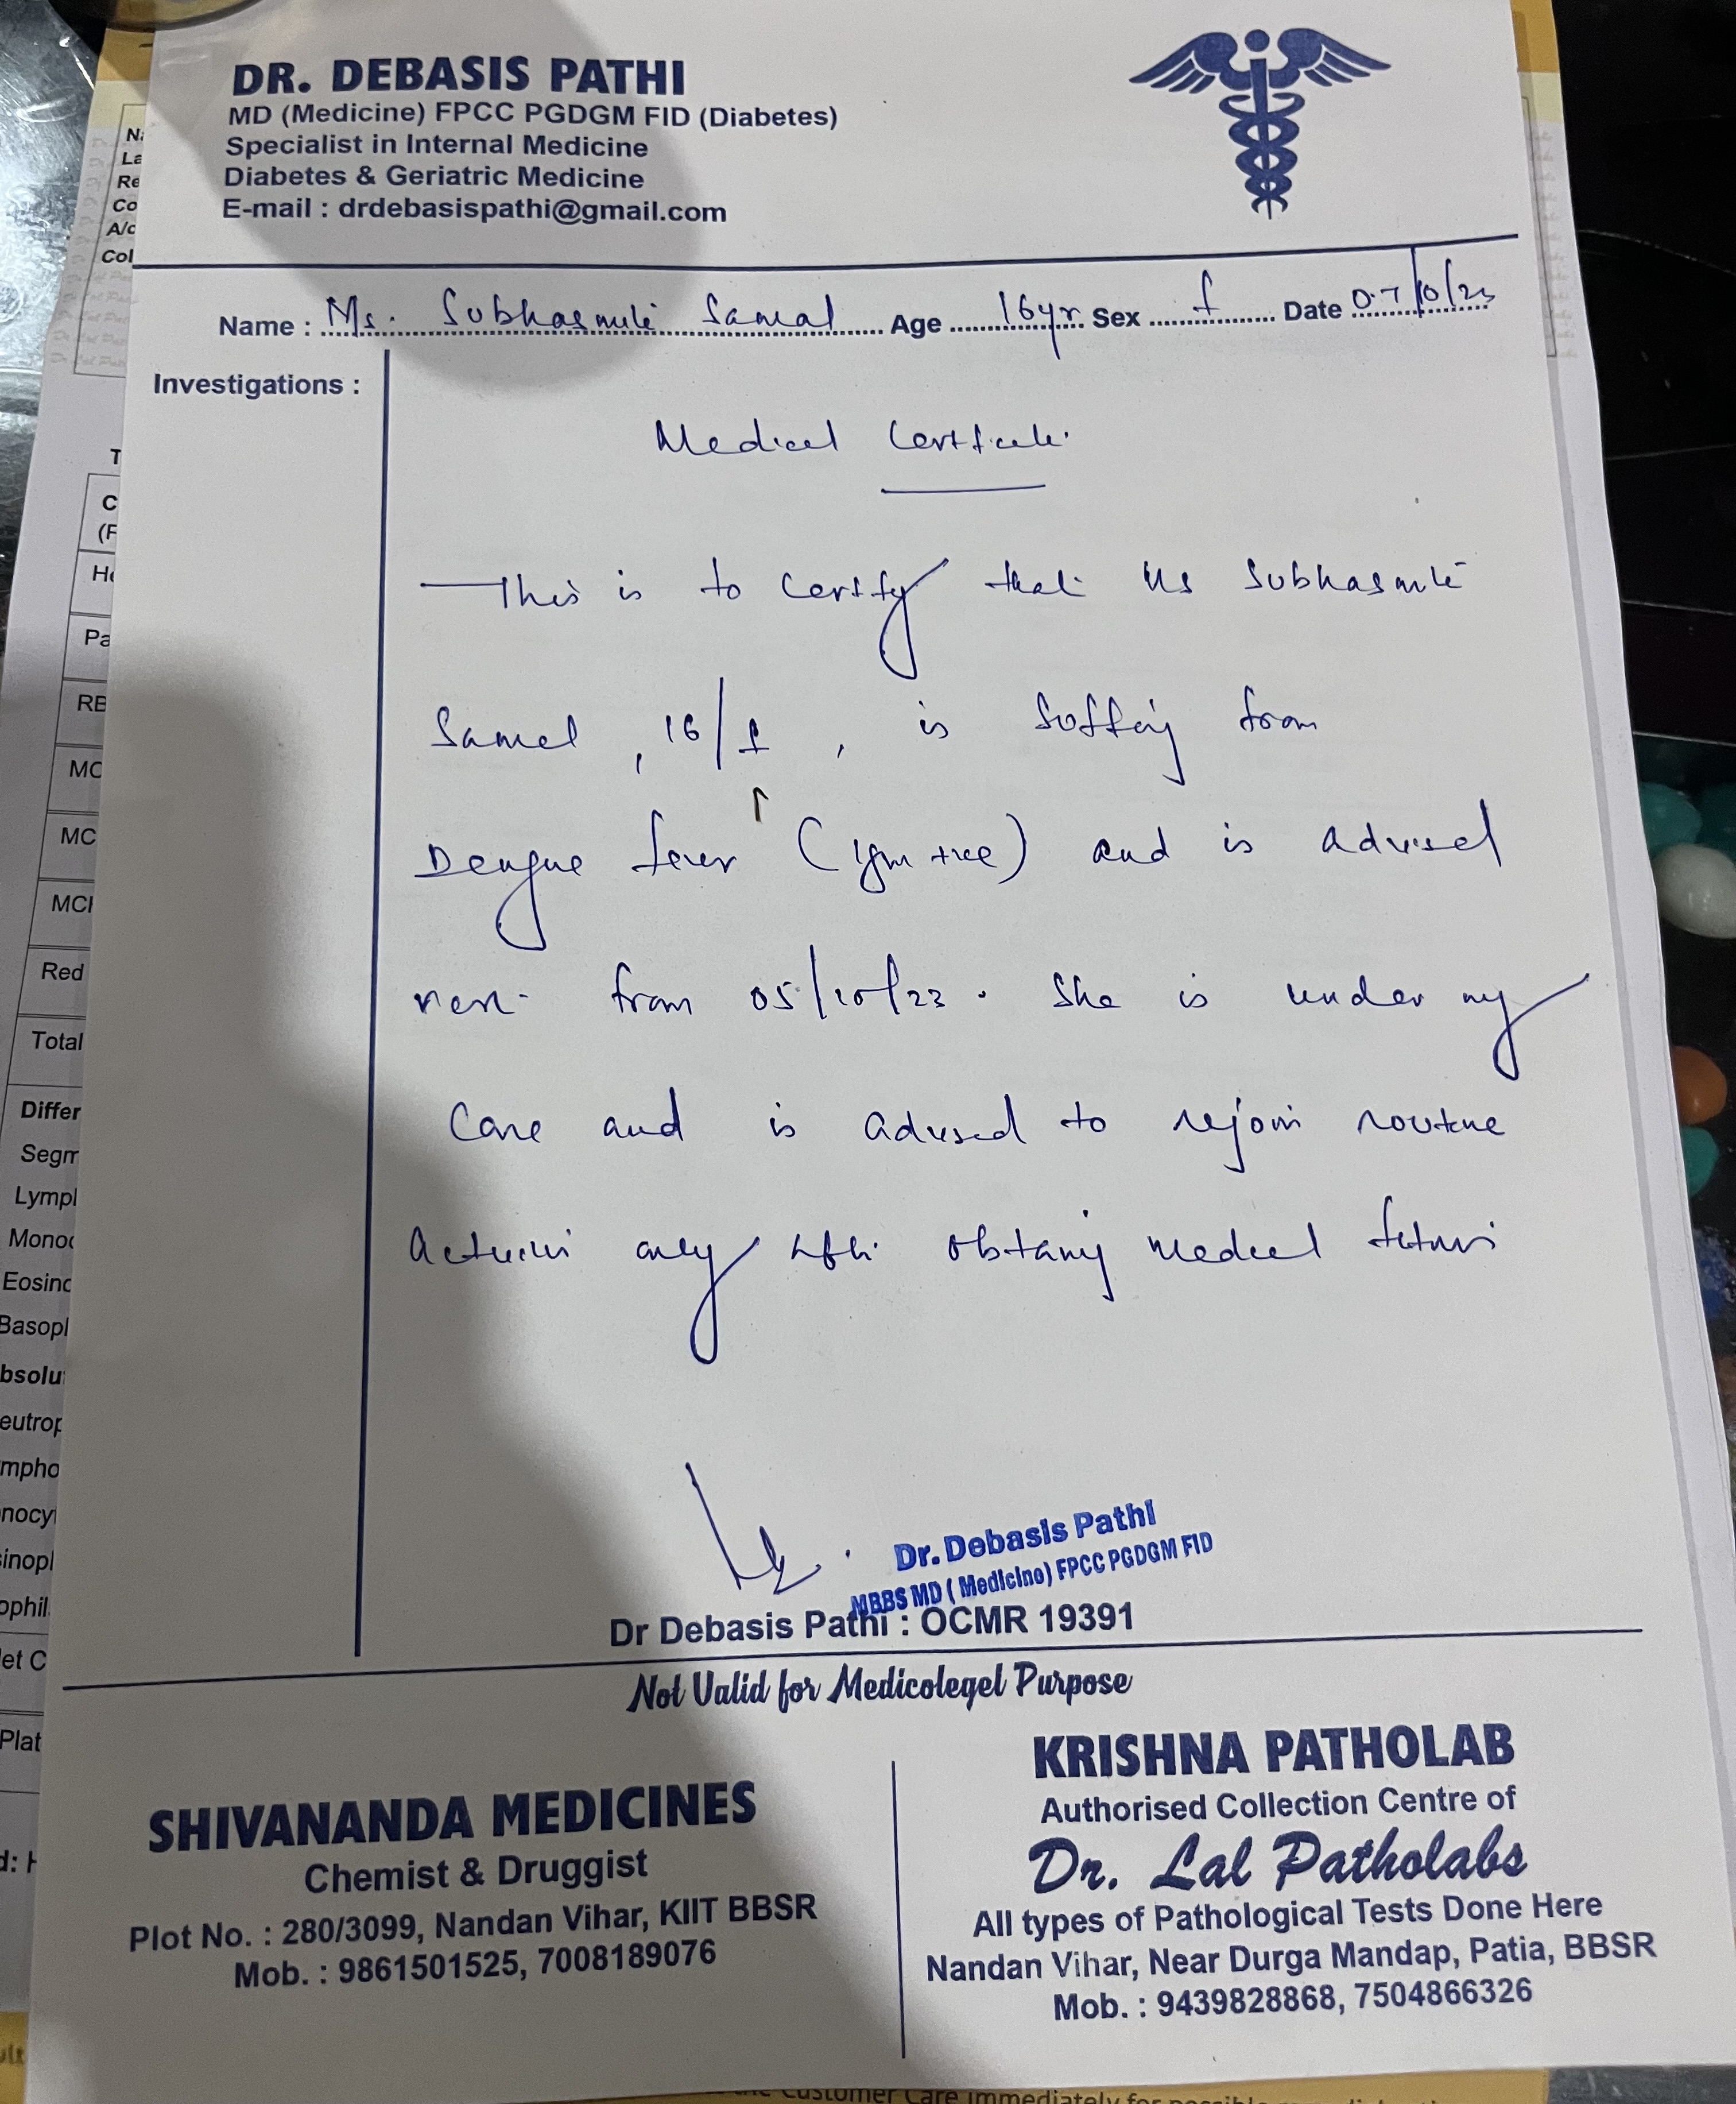 DR. DEBASIS PATHI
MD (Medicine) FPCC PGDGM FID (Diabetes)
Specialist in Internal Medicine
Diabetes & Geriatric Medicine
E-mail : drdebasispathi@gmail.com
Name : Ms. Subhasmile Samal Age 16yr Sex f Date 07/10/23
Investigations :
Medical Certificate
This is to certify that Ms Subhasmile
Samal, 16/f, is suffering from
Dengue fever (IgM +ve) and is advised
rest from 05/10/23. She is under my
care and is advised to rejoin routine
activities only after obtaining medical fitness
Dr. Debasis Pathi
MBBS MD (Medicine) FPCC PGDGM FID
Dr Debasis Pathi : OCMR 19391
Not Valid for Medicolegel Purpose
SHIVANANDA MEDICINES
Chemist & Druggist
Plot No. : 280/3099, Nandan Vihar, KIIT BBSR
Mob. : 9861501525, 7008189076
KRISHNA PATHOLAB
Authorised Collection Centre of
Dr. Lal Patholabs
All types of Pathological Tests Done Here
Nandan Vihar, Near Durga Mandap, Patia, BBSR
Mob. : 9439828868, 7504866326
La
Re
Co
A/c
Col
T
C
(F
Pa
RB
MC
MC
Red
Total
Differ
Segm
Lympl
Mono
Eosino
Basopl
Plat